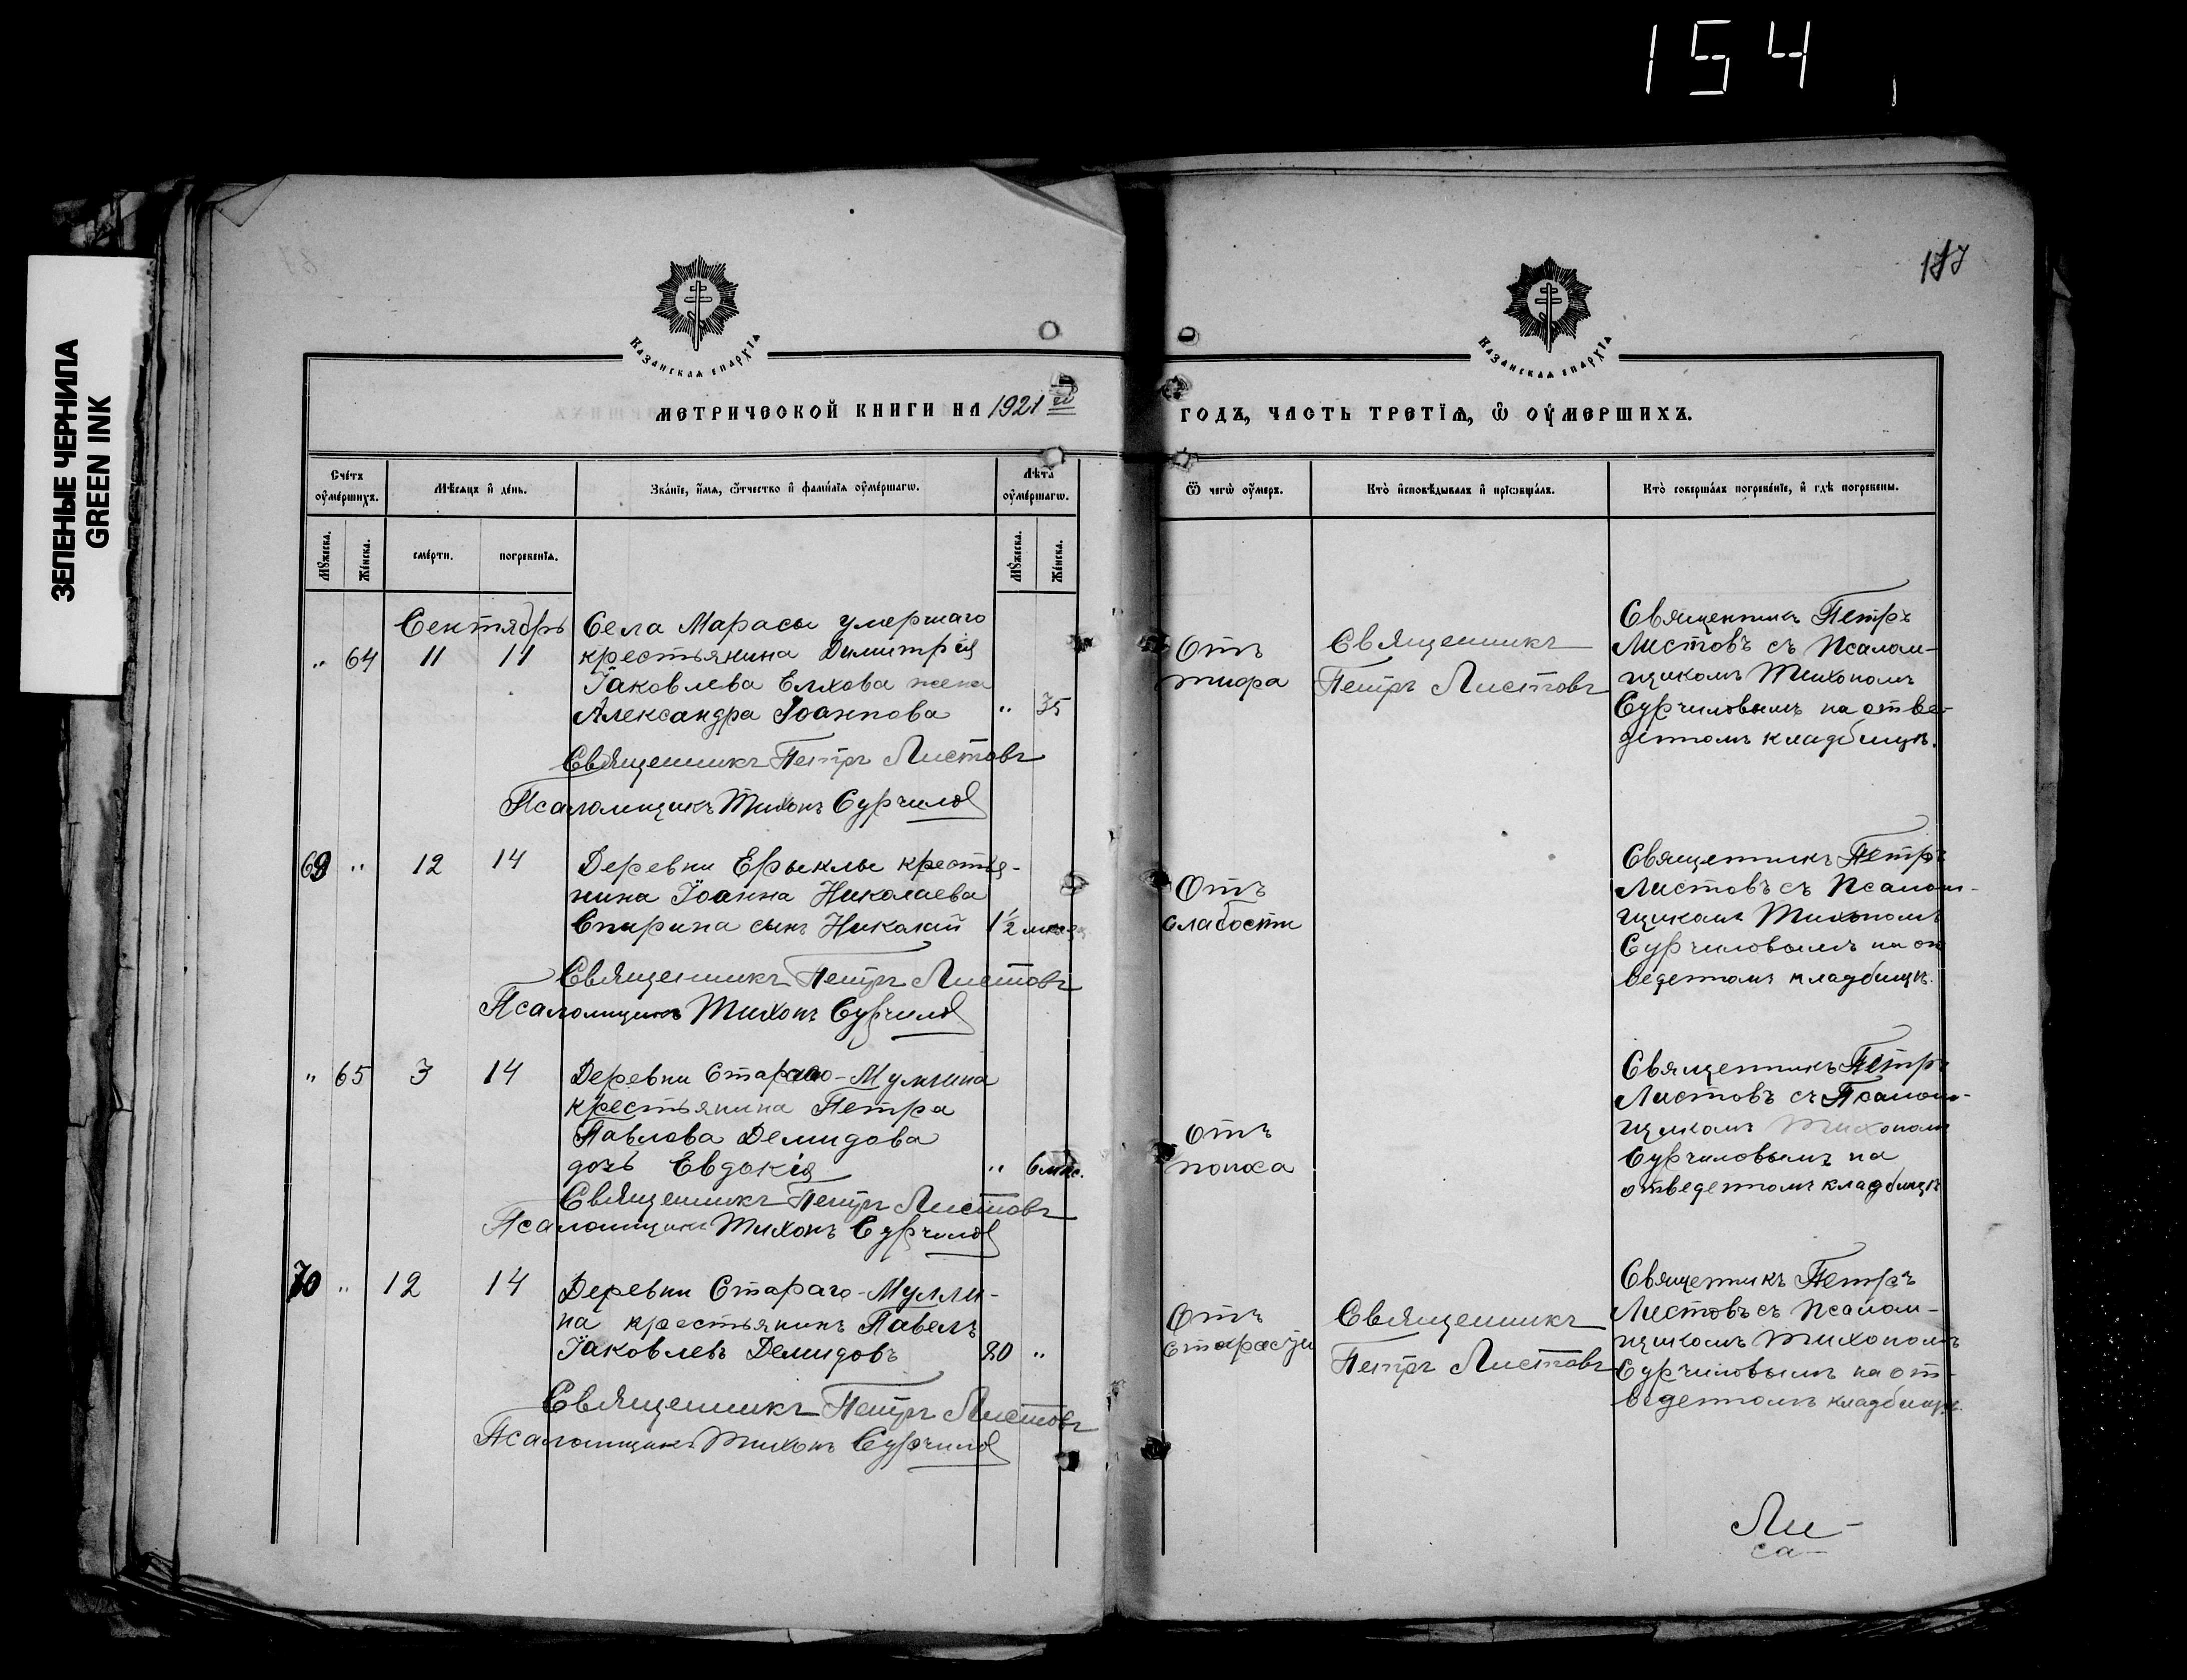 154
ЗЕЛЕНЫЕ ЧЕРНИЛА
GREEN INK
КАЗАНСКАѦ ЕПАРХІѦ
КАЗАНСКАѦ ЕПАРХІѦ
МЕТРИЧЕСКОЙ КНИГИ НА 1921 й
ГОДЪ, ЧАСТЬ ТРЕТІѦ, Ѿ ОУМЕРШИХЪ.
Счéтъ оумéршихъ.
Мѣсяцъ и день.
Звáніе, имя, Ѻтчество и фамилія оумéршагѡ.
Лѣта оумéршагѡ.
Ѿ чегѡ оумеръ.
Кто исповѣдывалъ и пріѡбщалъ.
Кто совершалъ погребéніе, и гдѣ погребены.
Мужеска.
Женска.
смéрти.
погребенія.
Мужеска.
Женска.
Сентябрь
„ 64 11 11
Села Марасы умершаго
крестьянина Димитрія
Іаковлева Елхова жена
Александра Іоаннова „ 35
Священникъ Петръ Листовъ
Псаломщикъ Тихонъ Сурчилов
Отъ
тифа
Священникъ
Петръ Листовъ
Священникъ Петръ
Листовъ съ Псалом-
щикомъ Тихономъ
Сурчиловымъ на отве-
денномъ кладбищѣ.
69 „ 12 14
Деревни Ерыклы крестья-
нина Іоанна Николаева
Спирина сынъ Николай 1½ мѣсяц
Священникъ Петръ Листовъ
Псаломщикъ Тихонъ Сурчилов
Отъ
слабости
Священникъ Петръ
Листовъ съ Псалом-
щикомъ Тихономъ
Сурчиловымъ на от
веденномъ кладбищѣ.
„ 65 3 14
Деревни Стараго-Мулина
крестьянина Петра
Павлова Демидова
дочь Евдокія „ 6 мѣс.
Священникъ Петръ Листовъ
Псаломщикъ Тихонъ Сурчилов
Отъ
поноса
Священникъ Петръ
Листовъ съ Псалом-
щикомъ Тихономъ
Сурчиловымъ на
отведенномъ кладбищѣ
70 „ 12 14
Деревни Стараго-Мулли-
на крестьянинъ Павелъ
Іаковлевъ Демидовъ 80 „
Священникъ Петръ Листовъ
Псаломщикъ Тихонъ Сурчилов
Отъ
старости
Священникъ
Петръ Листовъ
Священникъ Петръ
Листовъ съ Псалом-
щикомъ Тихономъ
Сурчиловымъ на от-
веденномъ кладбищѣ.
Ли-
са-